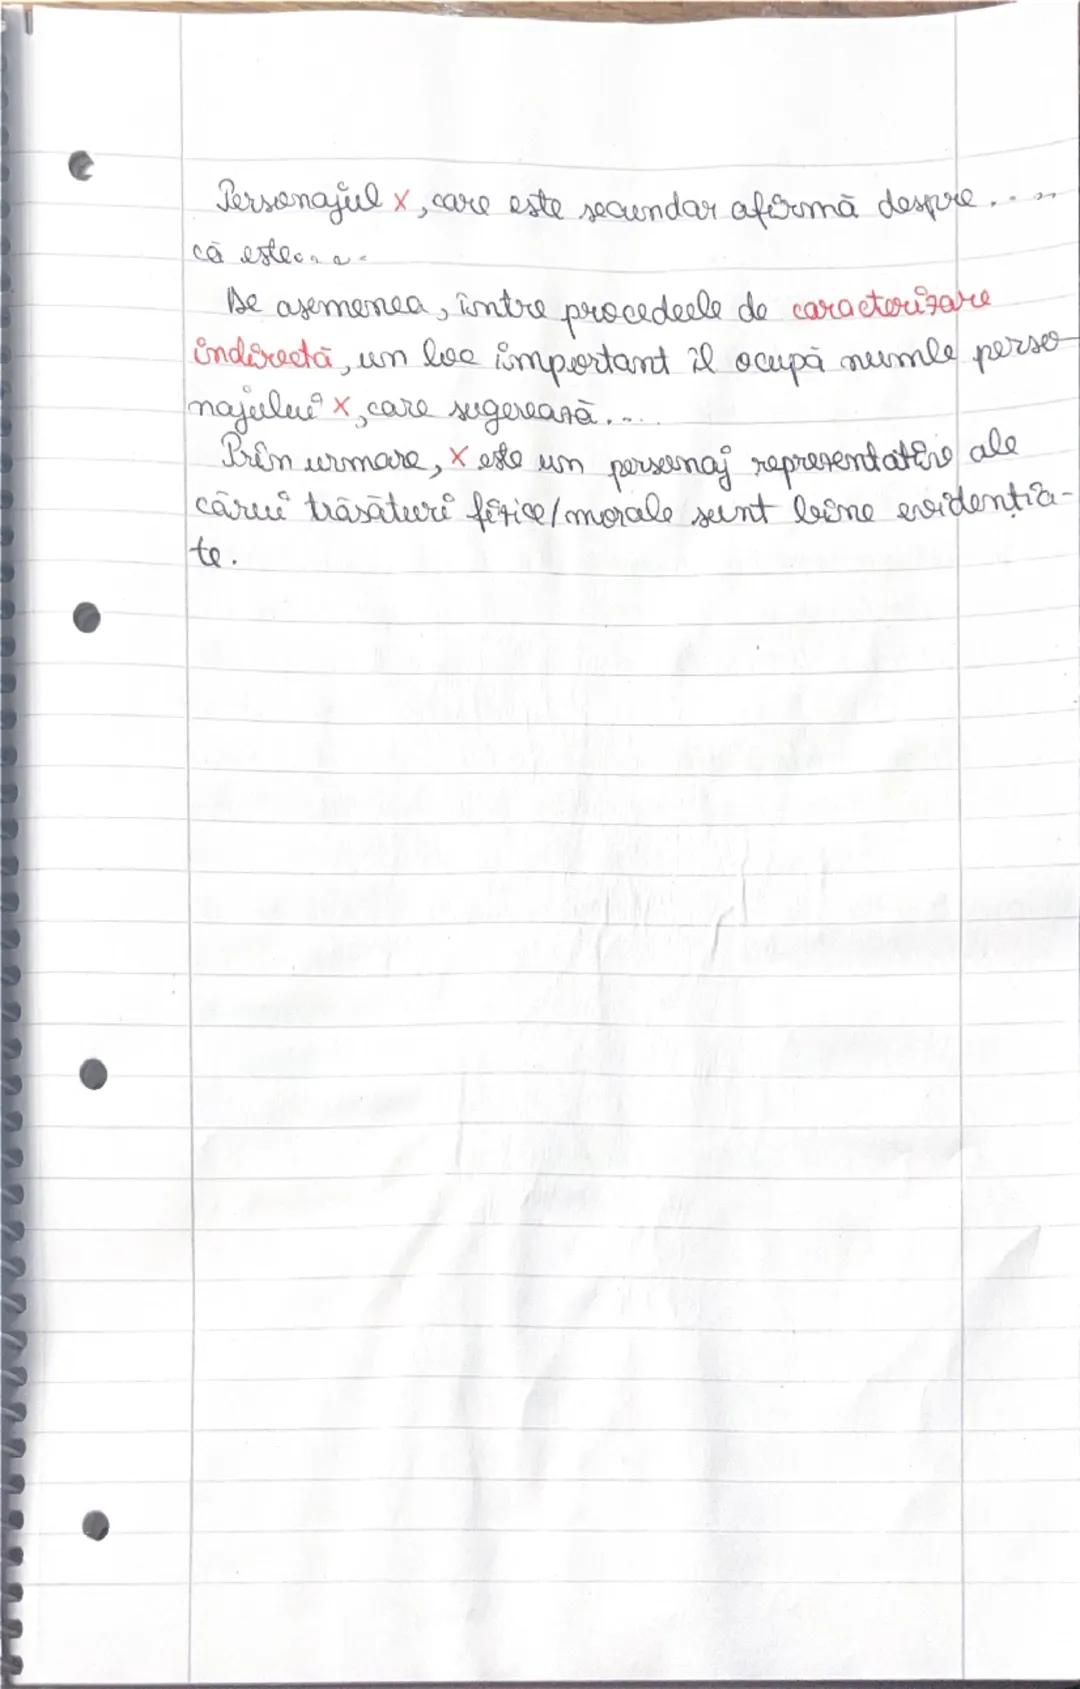 Personajul x, care este secundar afirmă despre....
că este....
De asemenea, între procedeele de caracterizare
indirectă, un loc important îl ocupă numle perso-
najului x, care sugerează....
Prin urmare, x este un personaj reprezentativ ale
cărui trăsături fizice/morale sunt bine evidenția-
te.